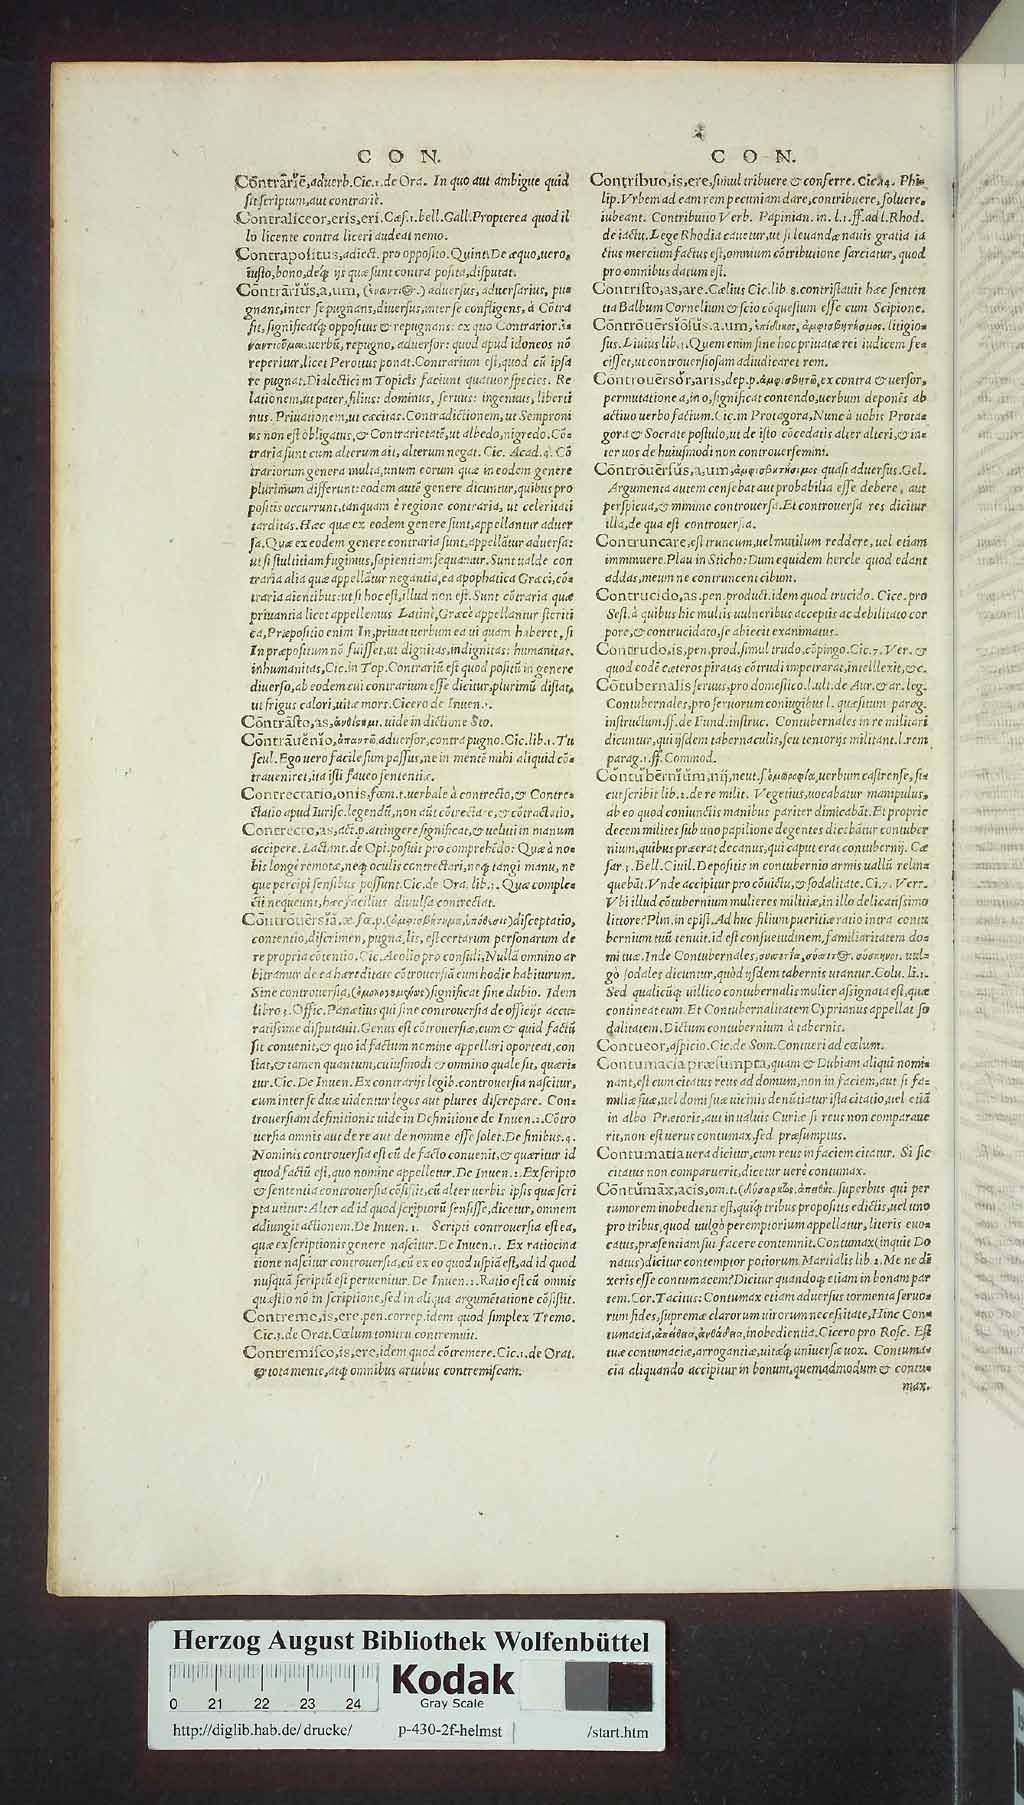 C O N.
Cōntrārĭē, aduerb. Cic. 1. de Ora. In quo aut ambigue quid
sit scriptum, aut contrariè.
Contraliceor, eris, eri. Cæs. 1. bell. Gall. Propterea quod il
lo licente contra liceri audeat nemo.
Contrapositus, adiect. pro opposito. Quint. De æquo, uero,
iusto, bono, deq́; ijs quæ sunt contra posita, disputat.
Cōntrārĭŭs, a, um, aduersus, aduersarius, pu=
gnans, inter se pugnans, diuersus, inter se confligens, à Cōtra
sit, significatq́; oppositus & repugnans: ex quo Contrarior.
uerbū, repugno, aduersor: quod apud idoneos nō
reperitur, licet Perottus ponat. Contrarium est, quod cū ipsa
re pugnat. Dialectici in Topicis faciunt quatuor species. Re
lationem, ut pater, filius: dominus, seruus: ingenuus, liberti
nus. Priuationem, ut cæcitas. Contradictionem, ut Semproni
us non est obligatus, & Contrarietatē, ut albedo, nigredo. Cō=
traria sunt cum alterum ait, alterum negat. Cic. Acad. 4. Cō
trariorum genera multa, unum eorum quæ in eodem genere
plurimum differunt: eodem autē genere dicuntur, quibus pro
positis occurrunt, tanquam è regione contraria, ut celeritati
tarditas. Hæc quæ ex eodem genere sunt, appellantur aduer
sa. Quæ ex eodem genere contraria sunt, appellātur aduersa:
ut si stultitiam fugimus, sapientiam sequamur. Sunt ualde con
traria alia quæ appellātur negantia, ea apophatica Græci, cō=
traria aientibus: ut si hoc est, illud non est. Sunt cōtraria quæ
priuantia licet appellemus Latinè, Græcè appellantur steriti
ca, Præpositio enim In, priuat uerbum ea ui quam haberet, si
In præpositum nō fuisset, ut dignitas, indignitas: humanitas.
inhumanitas, Cic. in Top. Contrariū est quod positū in genere
diuerso, ab eodem cui contrarium esse dicitur, plurimū distat,
ut frigus calori, uitæ mors. Cicero de Inuen. 1.
Cōntrāsto, as, uide in dictione Sto.
Cōntrāuĕnĭo, ἀπαντῶ, aduersor, contra pugno. Cic. lib. 1. Tu
scul. Ego uero facile sum passus, ne in mentē mihi aliquid cō=
traueniret, ita isti faueo sententiæ.
Contrectatio, onis, fœm. t. uerbale à contrecto, & Contre=
ctatio apud Iurisc. legendū, non aūt cōtrectare, & cōtractatio.
Contrecto, as, act. p. attingere significat, & ueluti in manum
accipere. Lactant. de Opi. posuit pro comprehēdo: Quæ à no=
bis longè remotæ, neq; oculis contrectari, neq; tangi manu, ne
que percipi sensibus possunt. Cic. de Ora. lib. 1. Quæ comple=
cti nequeunt, hæc facilius diuulsa contrectat.
Cōntrōuērsĭă, æ. fœ. p. (ἀμφισβήτημα, ὑπόθεσις) disceptatio,
contentio, discrimen, pugna, lis, est certarum personarum de
re propria cōtentio. Cic. Acolio pro consuli, Nulla omnino ar
bitramur de ea hæreditate cōtrouersiā eum hodie habiturum.
Sine controuersia, (ὁμολογουμένως) significat sine dubio. Idem
libro 3. Offic. Panætius qui sine controuersia de officijs accu=
ratissime disputauit. Genus est cōtrouersiæ, cum & quid factū
sit conuenit, & quo id factum nomine appellari oporteat, con
stat, & tamen quantum, cuiusmodi & omnino quale sit, quæri=
tur. Cic. De Inuen. Ex contrarijs legib. controuersia nascitur,
cum inter se duæ uidentur leges aut plures discrepare. Con=
trouersiam definitionis uide in Definitione de Inuen. 2. Cōtro
uersia omnis aut de re aut de nomine esse solet. De finibus. 4.
Nominis controuersia est cū de facto conuenit, & quæritur id
quod factū est, quo nomine appelletur. De Inuen. 2. Ex scripto
& sententia controuersia cōsistit, cū alter uerbis ipsis quæ scri
pta utitur: Alter ad id quod scriptorū sensisse, dicetur, omnem
adiungit actionem. De Inuen. 1. Scripti controuersia est ea,
quæ ex scriptionis genere nascitur. De Inuen. 1. Ex ratiocina
tione nascitur controuersia, cū ex eo quod uspiā est, ad id quod
nusquā scriptū est peruenitur. De Inuen. 2. Ratio est cū omnis
quæstio nō in scriptione, sed in aliqua argumētatione cōsistit.
Contremo, is, ere. pen. correp. idem quod simplex Tremo.
Cic. 3. de Orat. Cœlum tonitru contremuit.
Contremisco, is, ere, idem quod cōtremere. Cic. 1. de Orat.
& tota mente, atq́; omnibus artubus contremiscam.
C O N.
Contribuo, is, ere, simul tribuere & conferre. Cic. 14. Phi=
lip. Vrbem ad eam rem pecuniam dare, contribuere, soluere,
iubeant. Contributio Verb. Papinian. in. l. 1. ff. ad l. Rhod.
de iactu. Lege Rhodia cauetur, ut si leuandæ nauis gratia ia
ctus mercium factus est, omnium cōtributione sarciatur, quod
pro omnibus datum est.
Contristo, as, are. Cælius Cic. lib. 8. contristauit hæc senten
tia Balbum Cornelium & scio cōquestum esse cum Scipione.
Cōntrōuērsĭōsŭs. a. um, ἐπίδικος, ἀμφισβητήσιμος. litigio=
sus. Liuius lib. 3. Quem enim sine hoc priuatæ rei iudicem fe=
cisset, ut controuersiosam adiudicaret rem.
Controuērsŏr, aris, dep. p. ἀμφισβητῶ, ex contra & uersor,
permutatione a, in o, significat contendo, uerbum deponēs ab
actiuo uerbo factum. Cic. in Protagora, Nunc à uobis Prota=
gora & Socrate postulo, ut de isto cōcedatis alter alteri, & in=
ter uos de huiusmodi non controuersemini.
Cōntrōuērsŭs, a, um, ἀμφισβητήσιμος quasi aduersus. Gel.
Argumenta autem censebat aut probabilia esse debere, aut
perspicua, & minime controuersa. Et controuersa res dicitur
illa, de qua est controuersia.
Contruncare, est truncum, uel mutilum reddere, uel etiam
imminuere. Plau in Sticho: Dum equidem hercle quod edant
addas, meum ne contruncent cibum.
Contrucido, as. pen. product. idem quod trucido. Cice. pro
Sest. à quibus hic multis uulneribus acceptis ac debilitato cor
pore, & contrucidato, se abiecit exanimatus.
Contrudo, is, pen. prod. simul trudo, cōpingo. Cic. 7. Ver. &
quod eodē cæteros piratas cōtrudi imperarat, intellexit, &c.
Cōtubernalis seruus, pro domestico. l. ult. de Aur. & ar. leg.
Contubernales, pro seruorum coniugibus l. quæsitum parag.
instructum. ff. de Fund. instruc. Contubernales in re militari
dicuntur, qui ijsdem tabernaculis, seu tentorijs militant. l. rem
parag. 1. ff. Commod.
Cōntŭbērnĭŭm, nij, neut. s. ὁμοροφία, uerbum castrense, si=
cut scribit lib. 2. de re milit. Vegetius, uocabatur manipulus,
ab eo quod coniunctis manibus pariter dimicabāt. Et proprie
decem milites sub uno papilione degentes dicebātur contuber
nium, quibus præerat decanus, qui caput erat contubernij. Cæ
sar. 3. Bell. Ciuil. Depositis in contubernio armis uallū relin=
quebāt. Vnde accipitur pro cōuictu, & sodalitate. Ci. 7. Verr.
Vbi illud cōtubernium mulieres militiæ, in illo delicatissimo
littore? Plin. in epist. Ad huc filium pueritiæ ratio intra contu
bernium tuū tenuit. id est consuetudinem, familiaritatem do=
mi tuæ. Inde Contubernales, uul=
gò sodales dicuntur, quòd ijsdem tabernis utantur. Colu. li. 1.
Sed qualicūq; uillico contubernalis mulier assignata est, quæ
contineat eum. Et Contubernalitatem Cyprianus appellat so
dalitatem. Dictum contubernium à tabernis.
Contueor, aspicio. Cic. de Som. Contueri ad cœlum.
Contumacia præsumpta, quam & Dubiam aliqui nomi=
nant, est cum citatus reus ad domum, non in faciem, aut si fa=
miliæ suæ, uel domi suæ uicinis denūtiatur ista citatio, uel etiā
in albo Prætoris, aut in ualuis Curiæ si reus non comparaue
rit, non est uerus contumax, sed præsumptus.
Contumatia uera dicitur, cum reus in faciem citatur. Si sic
citatus non comparuerit, dicetur uerè contumax.
Cōntŭmāx, acis, om. t. superbus qui per
tumorem inobediens est, quiq́; tribus propositis edictis, uel uno
pro tribus, quod uulgò peremptorium appellatur, literis euo=
catus, præsentiam sui facere contemnit. Contumax (inquit Do
natus) dicitur contemptor potiorum. Martialis lib. 2. Me ne dī
xeris esse contumacem? Dicitur quandoq; etiam in bonam par
tem. Cor. Tacitus: Contumax etiam aduersus tormenta seruo=
rum fides, supremæ clarorum uirorum necessitate, Hinc Con=
tumacia, ἀπείθεια, αὐθάδεια, inobedientia. Cicero pro Rosc. Est
tuæ contumaciæ, arrogantiæ, uitæq́; uniuersæ uox. Contuma=
cia aliquando accipitur in bonum, quemadmodum & contu=
max.
Herzog August Bibliothek Wolfenbüttel
Kodak
Gray Scale
0 21 22 23 24
http://diglib.hab.de/drucke/ p-430-2f-helmst /start.htm